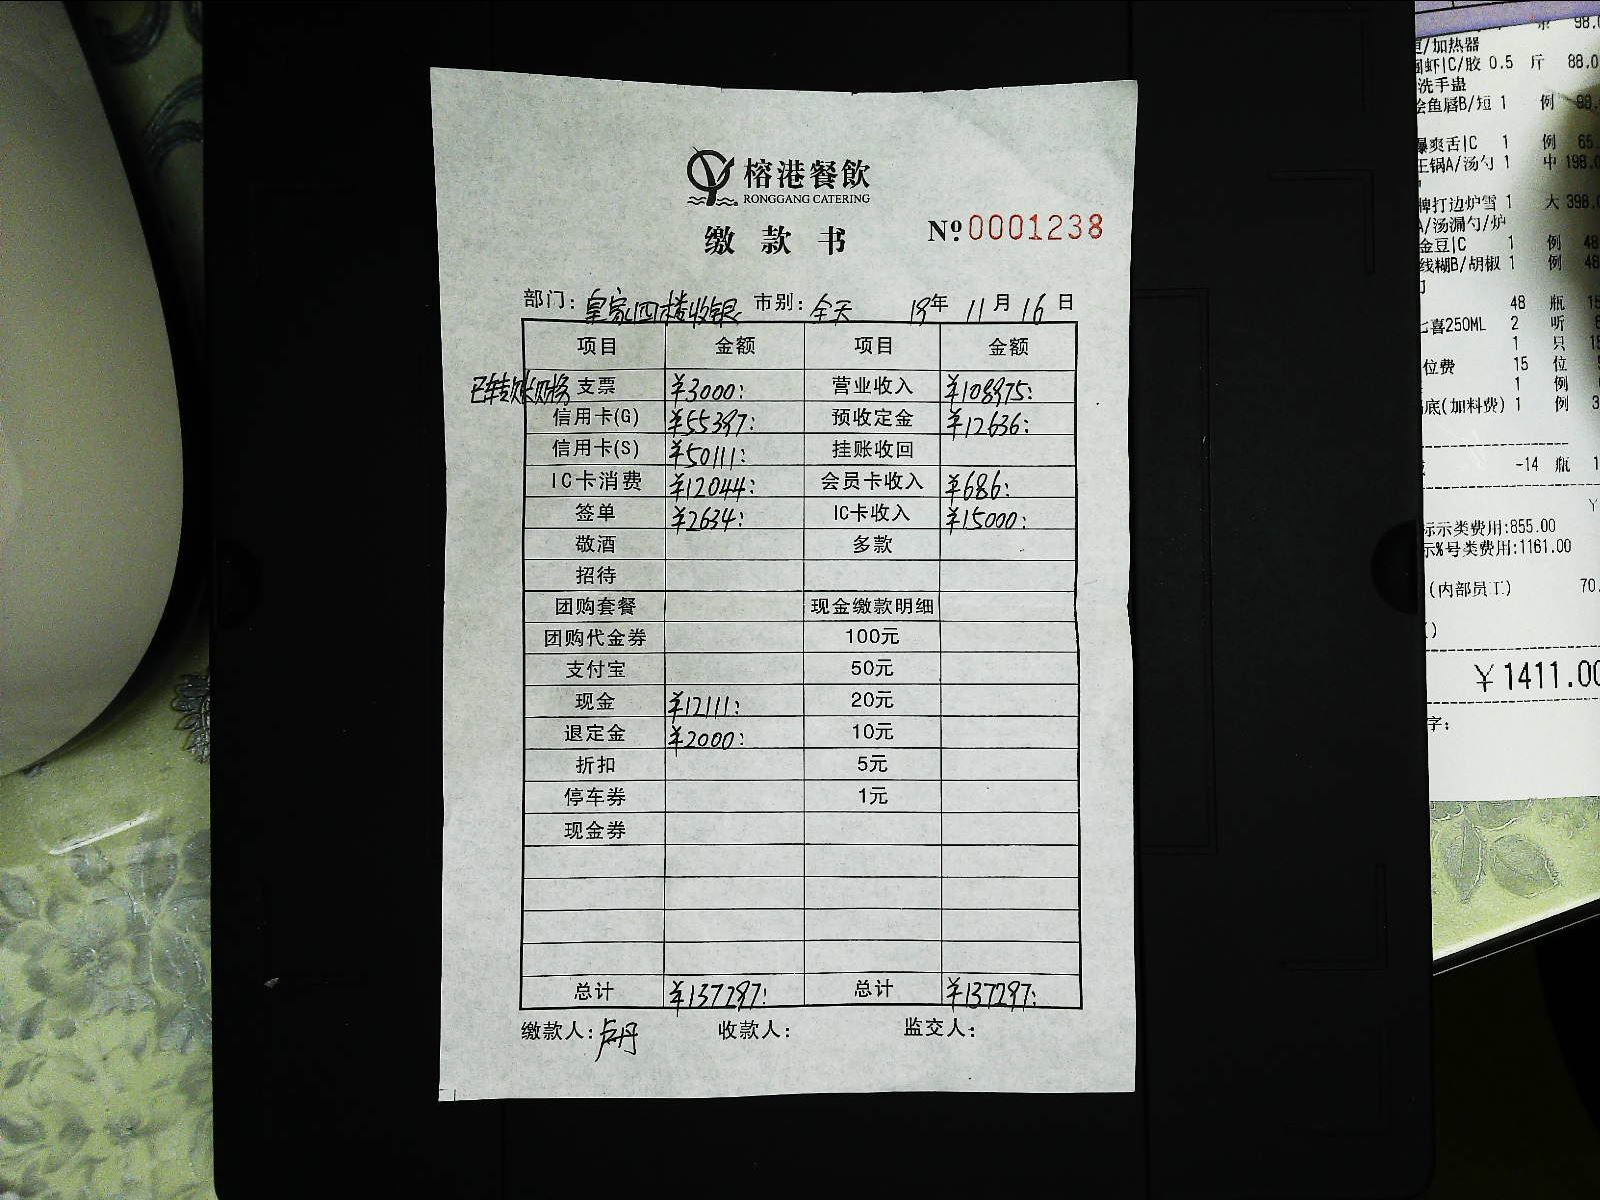 榕港餐飲
RONGGANG CATERING
缴款书 Nº 0001238
部门: 皇家四楼收银 市别: 全天 18年 11月 16日
项目 金额 项目 金额
支票 ¥3000: 营业收入 ¥108975:
信用卡(G) ¥55397: 预收定金 ¥12636:
信用卡(S) ¥50111: 挂账收回
IC卡消费 ¥12044: 会员卡收入 ¥686:
签单 ¥2634: IC卡收入 ¥15000:
敬酒 多款
招待
团购套餐 现金缴款明细
团购代金券 100元
支付宝 50元
现金 ¥12111: 20元
退定金 ¥2000: 10元
折扣 5元
停车券 1元
现金券
总计 ¥137297: 总计 ¥137297:
缴款人: 卢丹 收款人: 监交人:
98.0
/加热器
虾|C/胶 0.5 斤 88.0
洗手蛊
鱼唇B/短 1 例 88.
爆爽舌|C 1 例 65.
王锅A/汤勺 1 中 198.0
牌打边炉雪 1 大 398.0
A/汤漏勺/炉
金豆|C 1 例 48
线糊B/胡椒 1 例 48
48 瓶 15
七喜250ML 2 听
1 只
位费 15 位
1 例
底(加料费) 1 例 3
-14 瓶
标示类费用:855.00
示%号类费用:1161.00
(内部员工) 70.
¥1411.00
字: